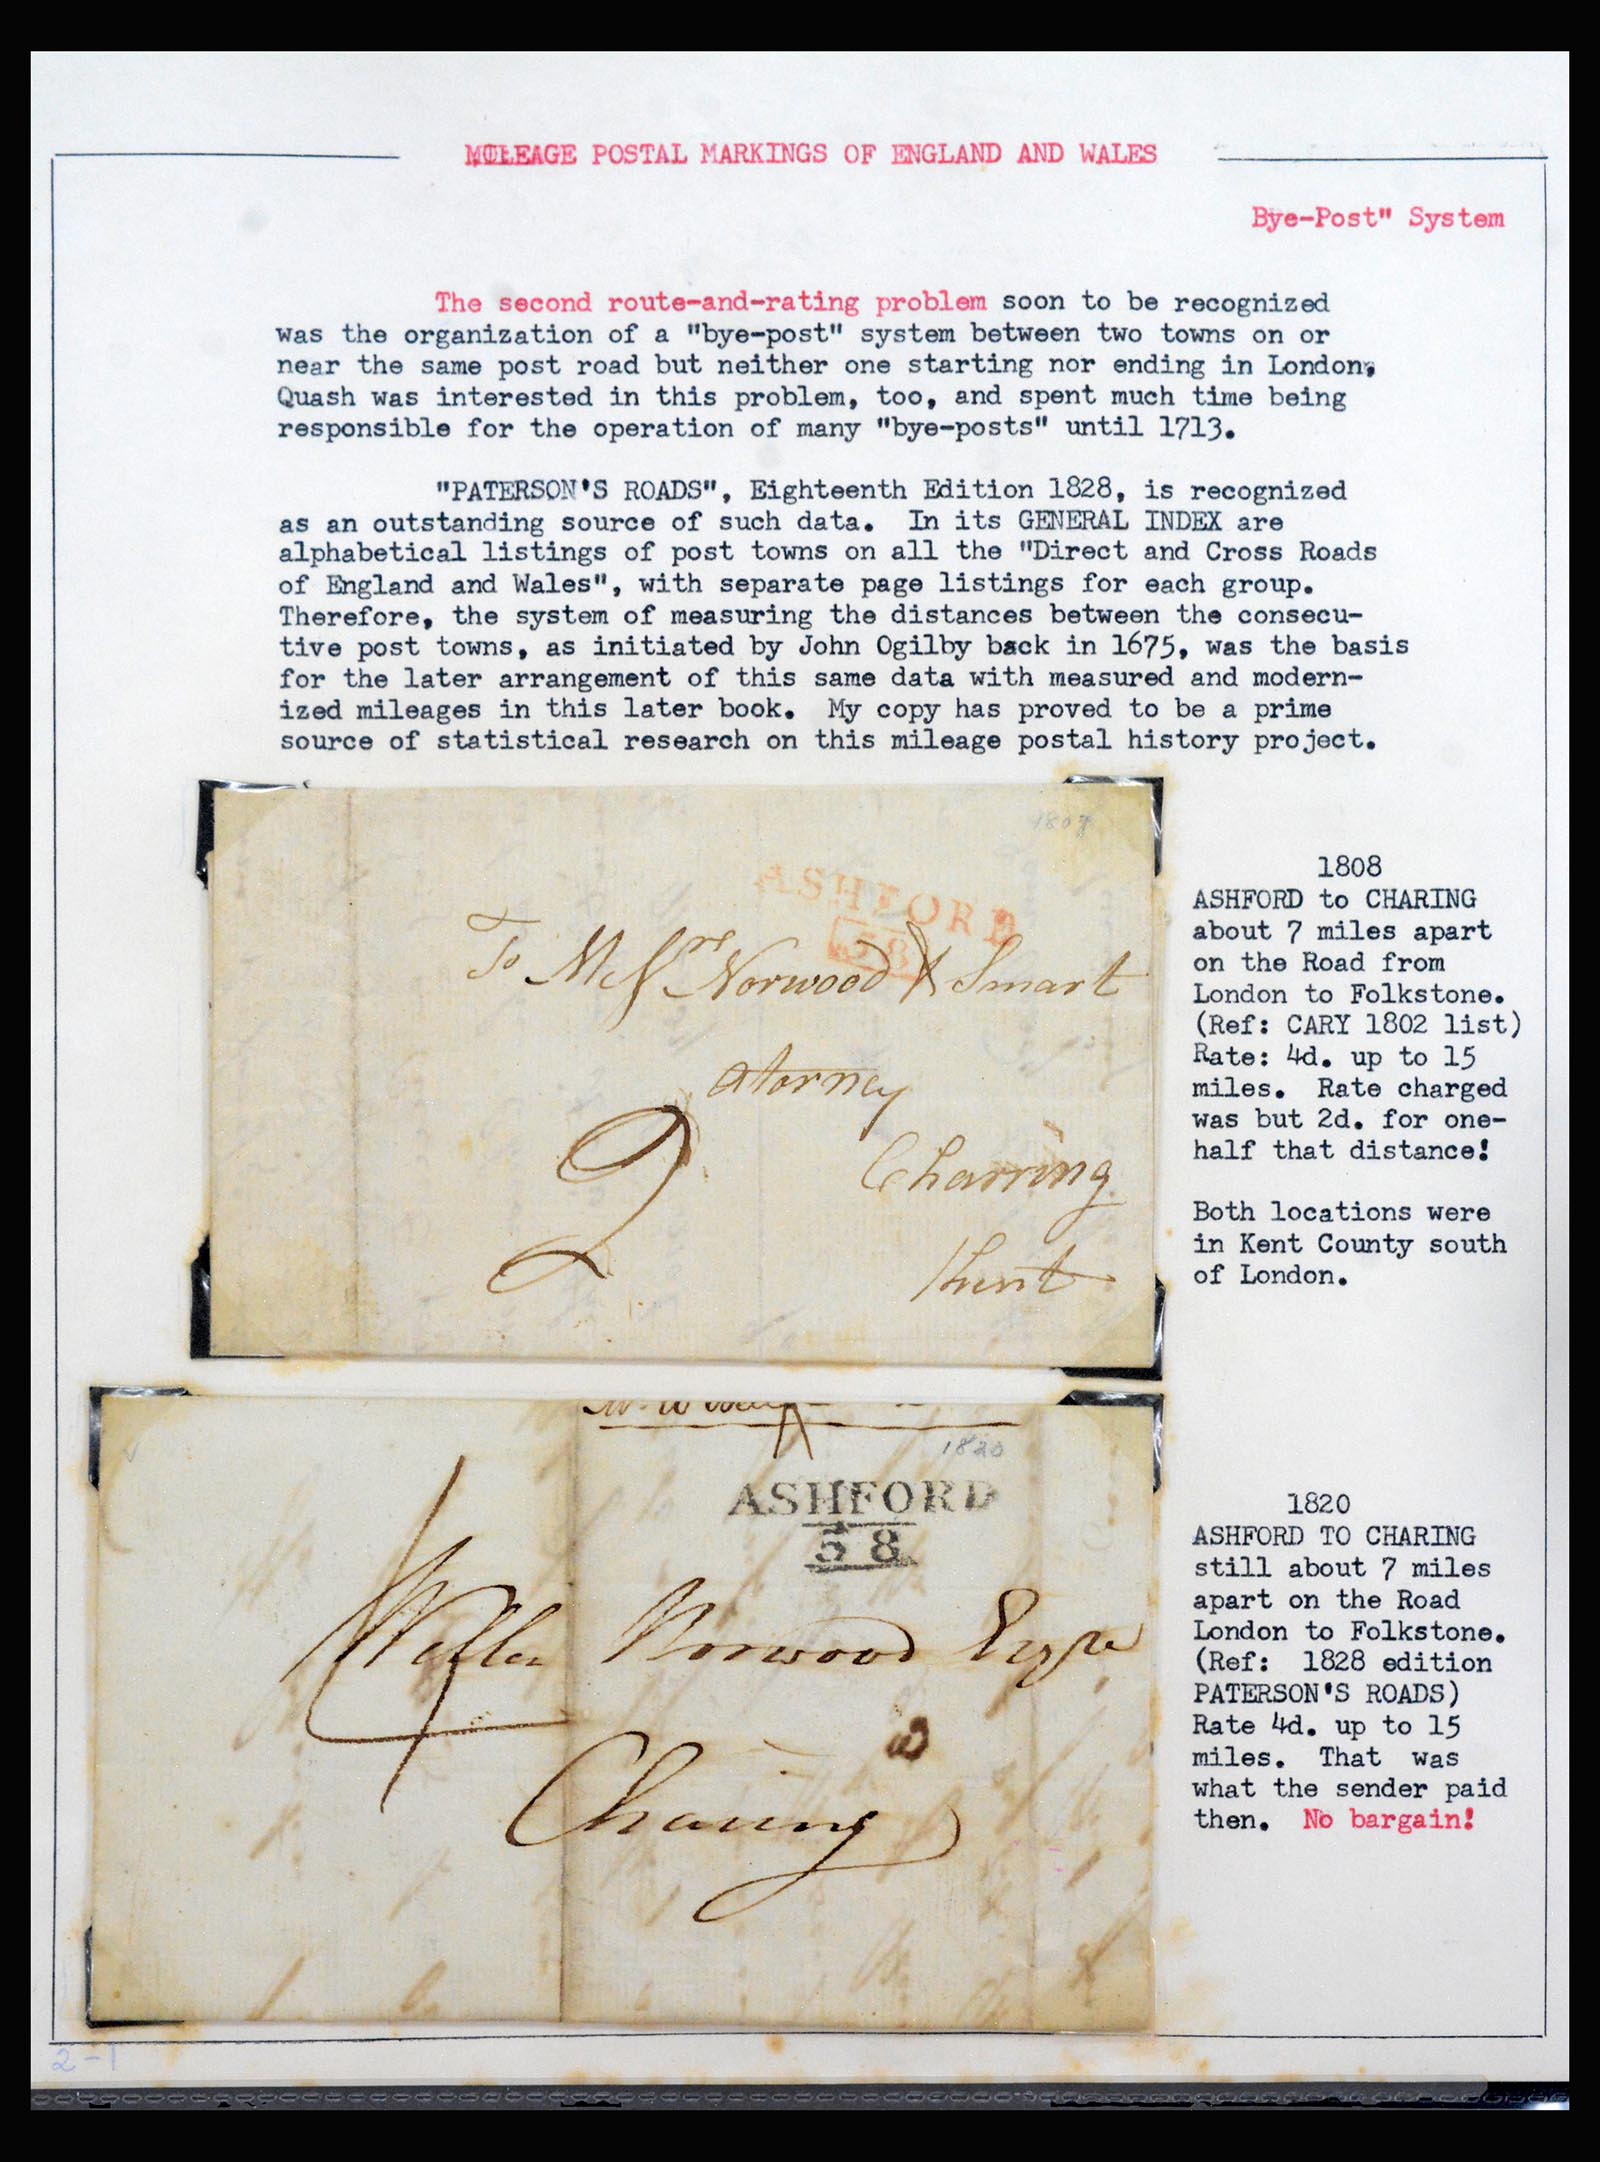 MILEAGE POSTAL MARKINGS OF ENGLAND AND WALES
Bye-Post" System
The second route-and-rating problem soon to be recognized
was the organization of a "bye-post" system between two towns on or
near the same post road but neither one starting nor ending in London,
Quash was interested in this problem, too, and spent much time being
responsible for the operation of many "bye-posts" until 1713.
"PATERSON'S ROADS", Eighteenth Edition 1828, is recognized
as an outstanding source of such data. In its GENERAL INDEX are
alphabetical listings of post towns on all the "Direct and Cross Roads
of England and Wales", with separate page listings for each group.
Therefore, the system of measuring the distances between the consecu-
tive post towns, as initiated by John Ogilby back in 1675, was the basis
for the later arrangement of this same data with measured and modern-
ized mileages in this later book. My copy has proved to be a prime
source of statistical research on this mileage postal history project.
180
ASHFORD
58
To Mssrs Norwood & Smart
atorney
2
Charring
Kent
1808
ASHFORD to CHARING
about 7 miles apart
on the Road from
London to Folkstone.
(Ref: CARY 1802 list)
Rate: 4d. up to 15
miles. Rate charged
was but 2d. for one-
half that distance!
Both locations were
in Kent County south
of London.
1820
ASHFORD
58
4
Norwood Esqre
Charing
1820
ASHFORD TO CHARING
still about 7 miles
apart on the Road
London to Folkstone.
(Ref: 1828 edition
PATERSON'S ROADS)
Rate 4d. up to 15
miles. That was
what the sender paid
then. No bargain!
2-1